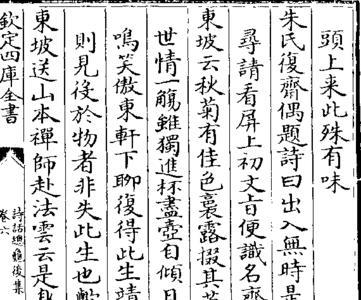 頭上来此殊有味
朱氏復齋偶題詩曰出入無時是
尋請看屏上初文㫖便識名齋
東坡云秋菊有佳色裛露掇其英
世情一觴雖獨進杯盡壺自傾日
鳴笑傲東軒下聊復得此生靖
則見役於物者非失此生也歟
東坡送山本禪師赴法雲云是身
欽定四庫全書
詩話總龜後集
卷六